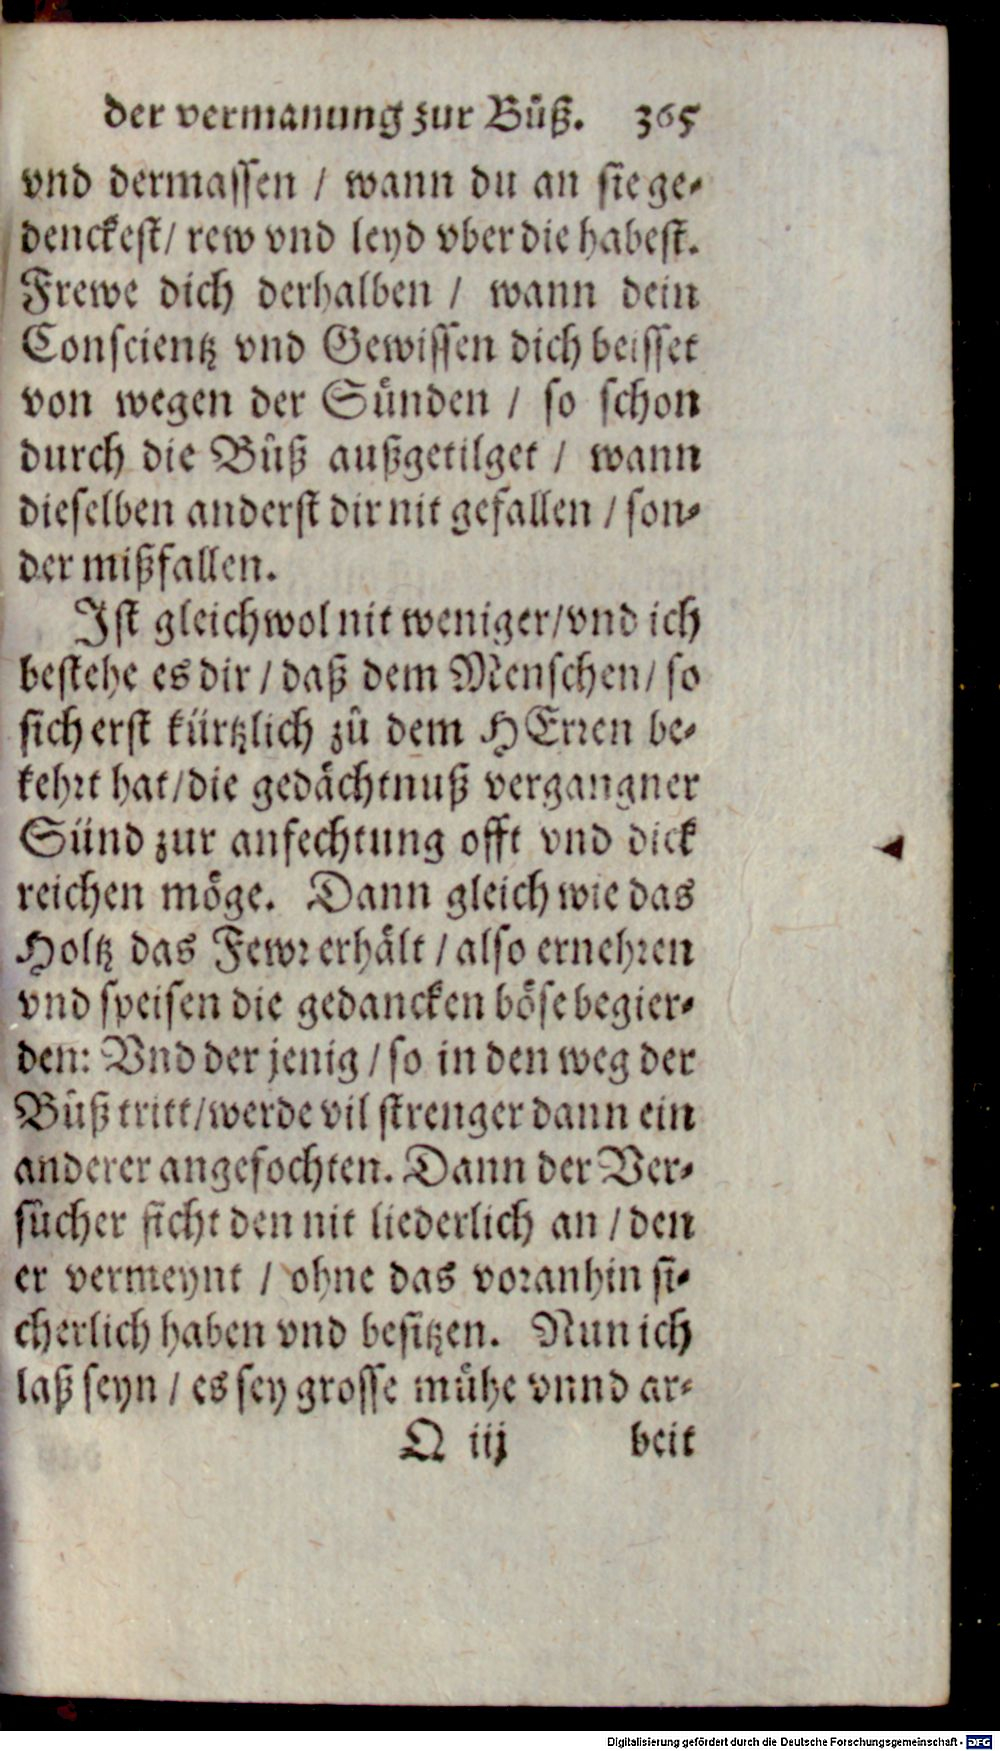 der vermanung zur Bůß. 365
vnd dermassen / wann du an sie ge⸗
denckest/ rew vnd leyd vber die habest.
Frewe dich derhalben / wann dein
Conscientz vnd Gewissen dich beisset
von wegen der Sünden / so schon
durch die Bůß außgetilget / wann
dieselben anderst dir nit gefallen / son⸗
der mißfallen.
Ist gleichwol nit weniger/vnd ich
bestehe es dir / daß dem Menschen/ so
sich erst kürtzlich zů dem HErren be⸗
kehrt hat/die gedächtnuß vergangner
Sünd zur anfechtung offt vnd dick
reichen möge. Dann gleich wie das
Holtz das Fewr erhält / also ernehren
vnd speisen die gedancken böse begier⸗
den: Vnd der jenig / so in den weg der
Bůß tritt/werde vil strenger dann ein
anderer angefochten. Dann der Ver⸗
sůcher ficht den nit liederlich an / den
er vermeynt / ohne das voranhin si⸗
cherlich haben vnd besitzen. Nun ich
laß seyn / es sey grosse mühe vnnd ar⸗
Q iij beit
Digitalisierung gefördert durch die Deutsche Forschungsgemeinschaft - DFG